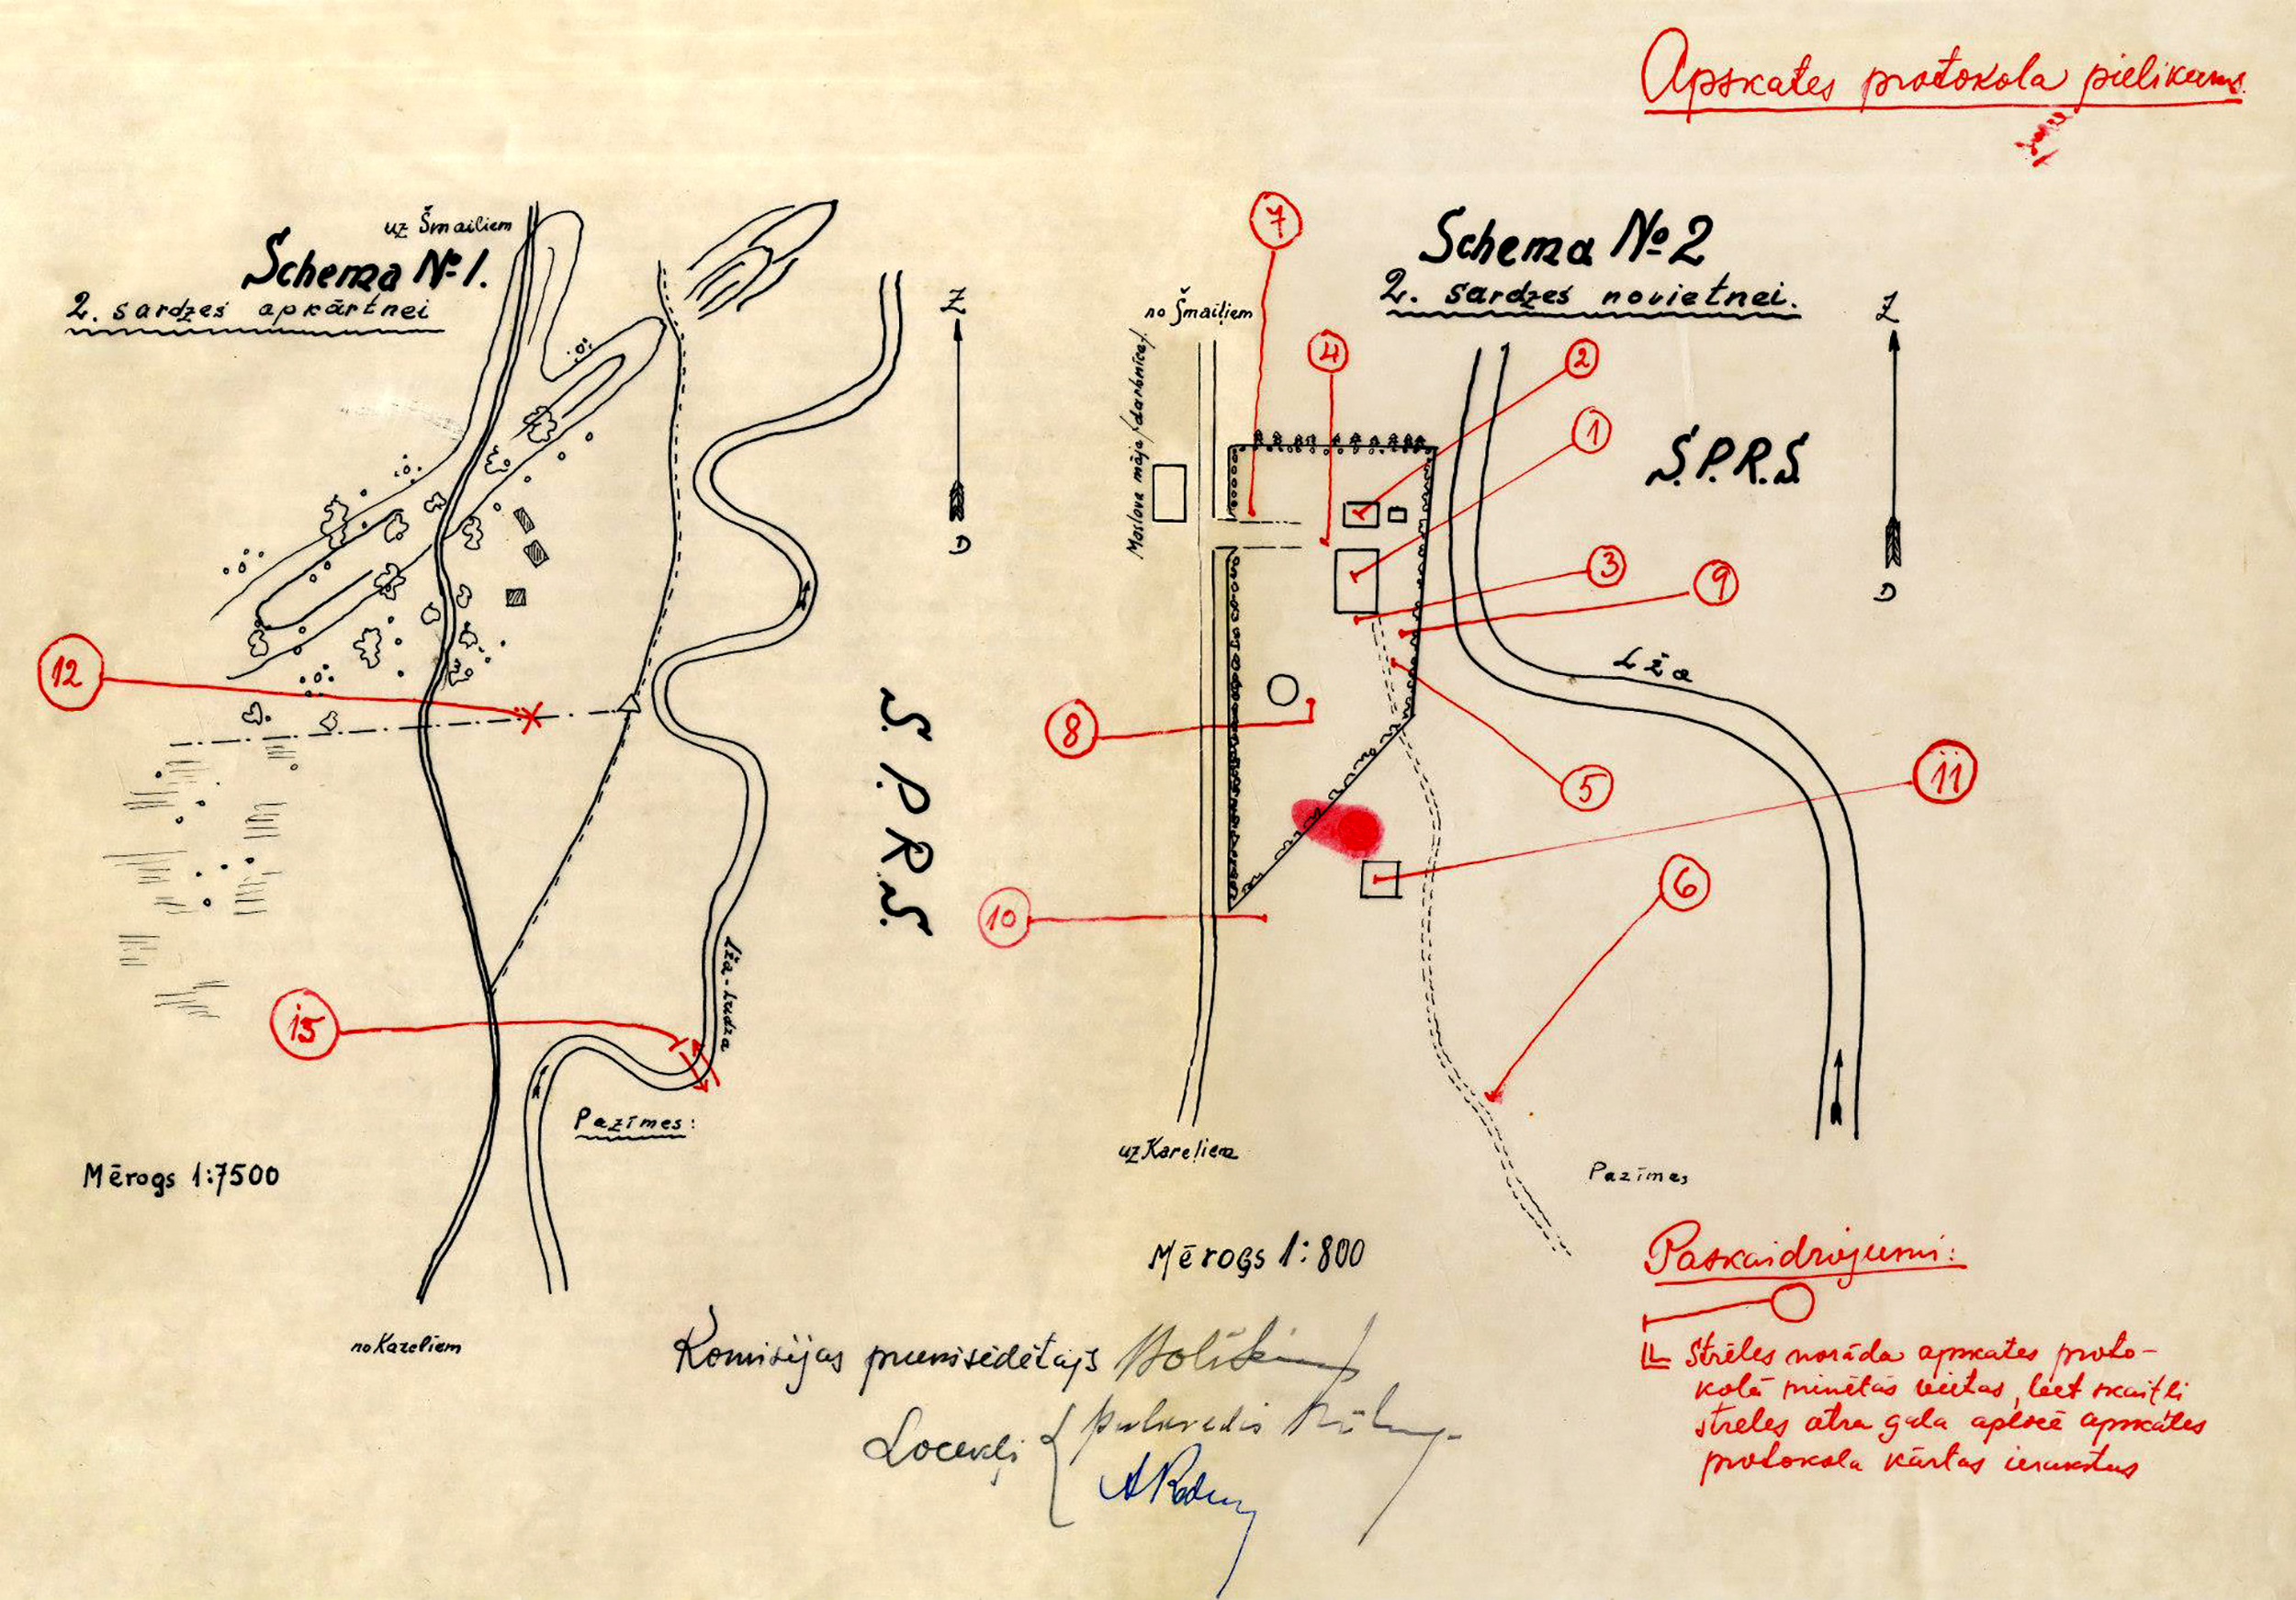 Apskates protokola pielikums.
uz Šmailiem
Schema № 1.
2. sardzes apkārtnei
Z
D
12
15
S. P. R. S.
Lža-Ludza
Pazīmes:
Mērogs 1:7500
no Kareļiem
Schema № 2
2. sardzes novietnei.
no Šmaiļiem
Maslova māja /darbnīca/
7
4
2
1
3
9
8
5
11
10
6
Z
D
S.P.R.S.
Lža
uz Kareļiem
Pazīmes
Mērogs 1:800
Paskaidrojumi:
Strēles norāda apskates proto-
kolā minētās vietas, bet skaitļi
strēles otra gala aplocē apskates
protokola kārtas ierakstus
Komisijas priekšsēdētājs
Locekļi
pulkvedis